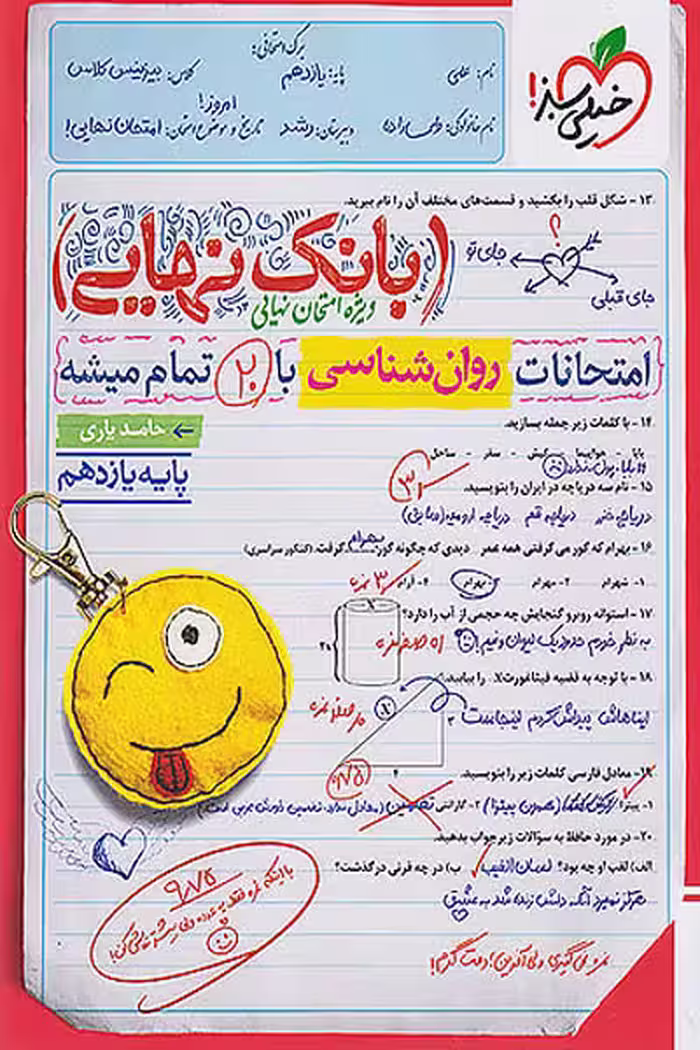 برگ امتحانی:
نام: علی پایه: یازدهم کلاس: بیزینس کلاس
امروز!
نام خانوادگی: دبیرستان: رشد تاریخ و موضوع امتحان: امتحان نهایی!
خیلی سبز!
۱۳ - شکل قلب را بکشید و قسمت‌های مختلف آن را نام ببرید.
؟
جای تو
جای قبلی
(بانک نهایی)
ویژه امتحان نهایی
امتحانات روان‌شناسی با ۲۰ تمام میشه
۱۴ - با کلمات زیر جمله بسازید.
حامد یاری
بابا - هواپیما - کیش - سفر - ساحل
بابا پول نداره
پایه یازدهم
۱۵ - نام سه دریاچه در ایران را بنویسید.
دریاچه خزر دریاچه قم دریاچه ارومیه (سابق)
۱۶ - بهرام که گور می گرفتی همه عمر دیدی که چگونه گور بهرام گرفت. (کنکور سراسری)
۱- شهرام ۲- مهرام ۳- بهرام ۴- آرام
۱۷ - استوانه روبرو گنجایش چه حجمی از آب را دارد؟
به نظر خودم حدود یک لیوان و نیم!
۱۸ - با توجه به قضیه فیثاغورث X را بیابید.
ایناهاش پیداش کردم اینجاست
X
۳
۴
۱۹- معادل فارسی کلمات زیر را بنویسید.
۱- پیتزا ۲- گارانتی تضمین
۲۰- در مورد حافظ به سوالات زیر جواب بدهید.
الف) لقب او چه بود؟ لسان الغیب ب) در چه قرنی درگذشت؟
هرگز نمیرد آنکه دلش زنده شد به عشق
۹/۷۵
نمره نمی‌گیری ولی آفرین! دمت گرم!